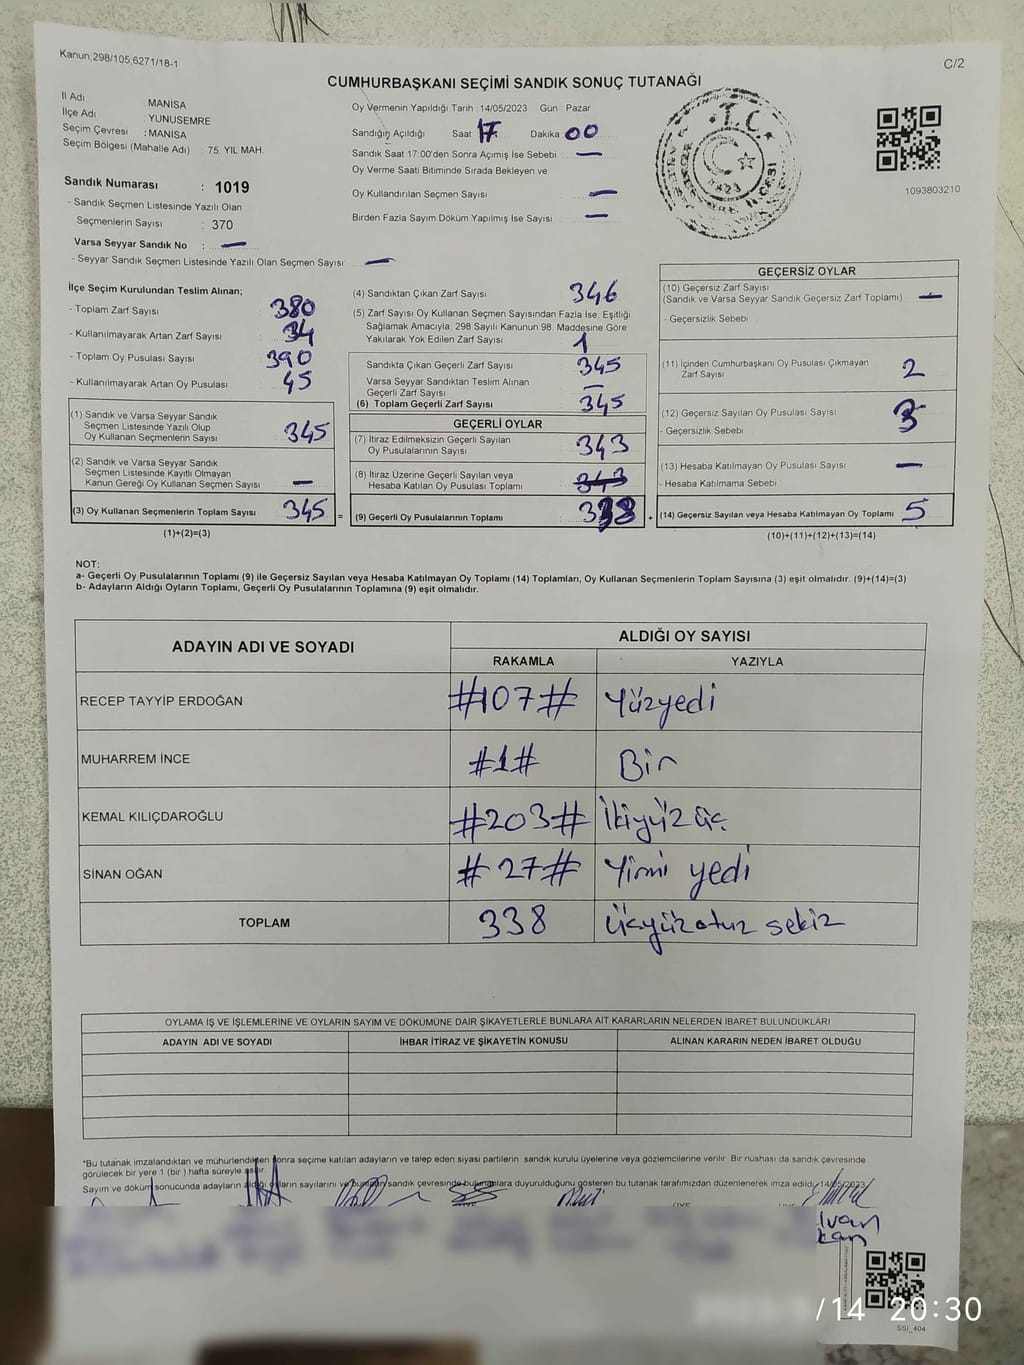 Kanun;298/105,6271/18-1
C/2
CUMHURBAŞKANI SEÇİMİ SANDIK SONUÇ TUTANAĞI
İl Adı : MANİSA
İlçe Adı : YUNUSEMRE
Seçim Çevresi : MANİSA
Seçim Bölgesi (Mahalle Adı) : 75. YIL MAH.
Sandık Numarası : 1019
- Sandık Seçmen Listesinde Yazılı Olan
Seçmenlerin Sayısı : 370
Varsa Seyyar Sandık No : —
- Seyyar Sandık Seçmen Listesinde Yazılı Olan Seçmen Sayısı: —
Oy Vermenin Yapıldığı Tarih : 14/05/2023 Gün : Pazar
Sandığın Açıldığı Saat 17 Dakika 00
Sandık Saat 17:00'den Sonra Açımış İse Sebebi : —
Oy Verme Saati Bitiminde Sırada Bekleyen ve
Oy Kullandırılan Seçmen Sayısı : —
Birden Fazla Sayım Döküm Yapılmış İse Sayısı : —
T.C.
1093803210
İlçe Seçim Kurulundan Teslim Alınan;
- Toplam Zarf Sayısı : 380
- Kullanılmayarak Artan Zarf Sayısı : 34
- Toplam Oy Pusulası Sayısı : 390
- Kullanılmayarak Artan Oy Pusulası : 45
(1) Sandık ve Varsa Seyyar Sandık
Seçmen Listesinde Yazılı Olup
Oy Kullanan Seçmenlerin Sayısı : 345
(2) Sandık ve Varsa Seyyar Sandık
Seçmen Listesinde Kayıtlı Olmayan
Kanun Gereği Oy Kullanan Seçmen Sayısı : —
(3) Oy Kullanan Seçmenlerin Toplam Sayısı : 345 =
(1)+(2)=(3)
(4) Sandıktan Çıkan Zarf Sayısı : 346
(5) Zarf Sayısı Oy Kullanan Seçmen Sayısından Fazla İse, Eşitliği
Sağlamak Amacıyla; 298 Sayılı Kanunun 98. Maddesine Göre
Yakılarak Yok Edilen Zarf Sayısı : 1
Sandıkta Çıkan Geçerli Zarf Sayısı : 345
Varsa Seyyar Sandıktan Teslim Alınan
Geçerli Zarf Sayısı : —
(6) Toplam Geçerli Zarf Sayısı : 345
GEÇERLİ OYLAR
(7) İtiraz Edilmeksizin Geçerli Sayılan
Oy Pusulalarının Sayısı : 343
(8) İtiraz Üzerine Geçerli Sayılan veya
Hesaba Katılan Oy Pusulası Toplamı : 343
(9) Geçerli Oy Pusulalarının Toplamı : 338 +
GEÇERSİZ OYLAR
(10) Geçersiz Zarf Sayısı
(Sandık ve Varsa Seyyar Sandık Geçersiz Zarf Toplamı) : —
- Geçersizlik Sebebi :
(11) İçinden Cumhurbaşkanı Oy Pusulası Çıkmayan
Zarf Sayısı : 2
(12) Geçersiz Sayılan Oy Pusulası Sayısı : 3
- Geçersizlik Sebebi :
(13) Hesaba Katılmayan Oy Pusulası Sayısı : —
- Hesaba Katılmama Sebebi :
(14) Geçersiz Sayılan veya Hesaba Katılmayan Oy Toplamı : 5
(10)+(11)+(12)+(13)=(14)
NOT:
a- Geçerli Oy Pusulalarının Toplamı (9) ile Geçersiz Sayılan veya Hesaba Katılmayan Oy Toplamı (14) Toplamları, Oy Kullanan Seçmenlerin Toplam Sayısına (3) eşit olmalıdır. (9)+(14)=(3)
b- Adayların Aldığı Oyların Toplamı, Geçerli Oy Pusulalarının Toplamına (9) eşit olmalıdır.
ADAYIN ADI VE SOYADI
ALDIĞI OY SAYISI
RAKAMLA YAZIYLA
RECEP TAYYİP ERDOĞAN #107# Yüzyedi
MUHARREM İNCE #1# Bir
KEMAL KILIÇDAROĞLU #203# İkiyüz üç
SİNAN OĞAN #27# Yirmi yedi
TOPLAM 338 Üçyüzotuz sekiz
OYLAMA İŞ VE İŞLEMLERİNE VE OYLARIN SAYIM VE DÖKÜMÜNE DAİR ŞİKAYETLERLE BUNLARA AİT KARARLARIN NELERDEN İBARET BULUNDUKLARI
ADAYIN ADI VE SOYADI İHBAR İTİRAZ VE ŞİKAYETİN KONUSU ALINAN KARARIN NEDEN İBARET OLDUĞU
*Bu tutanak imzalandıktan ve mühürlendikten sonra seçime katılan adayların ve talep eden siyasi partilerin sandık kurulu üyelerine veya gözlemcilerine verilir. Bir nüshası da sandık çevresinde
görülecek bir yere 1 (bir ) hafta süreyle asılır.
Sayım ve döküm sonucunda adayların aldığı oyların sayılarını ve bunların sandık çevresinde bulunanlara duyurulduğunu gösteren bu tutanak tarafımızdan düzenlenerek imza edildi. 14/05/2023
/14 20:30
SSI_404